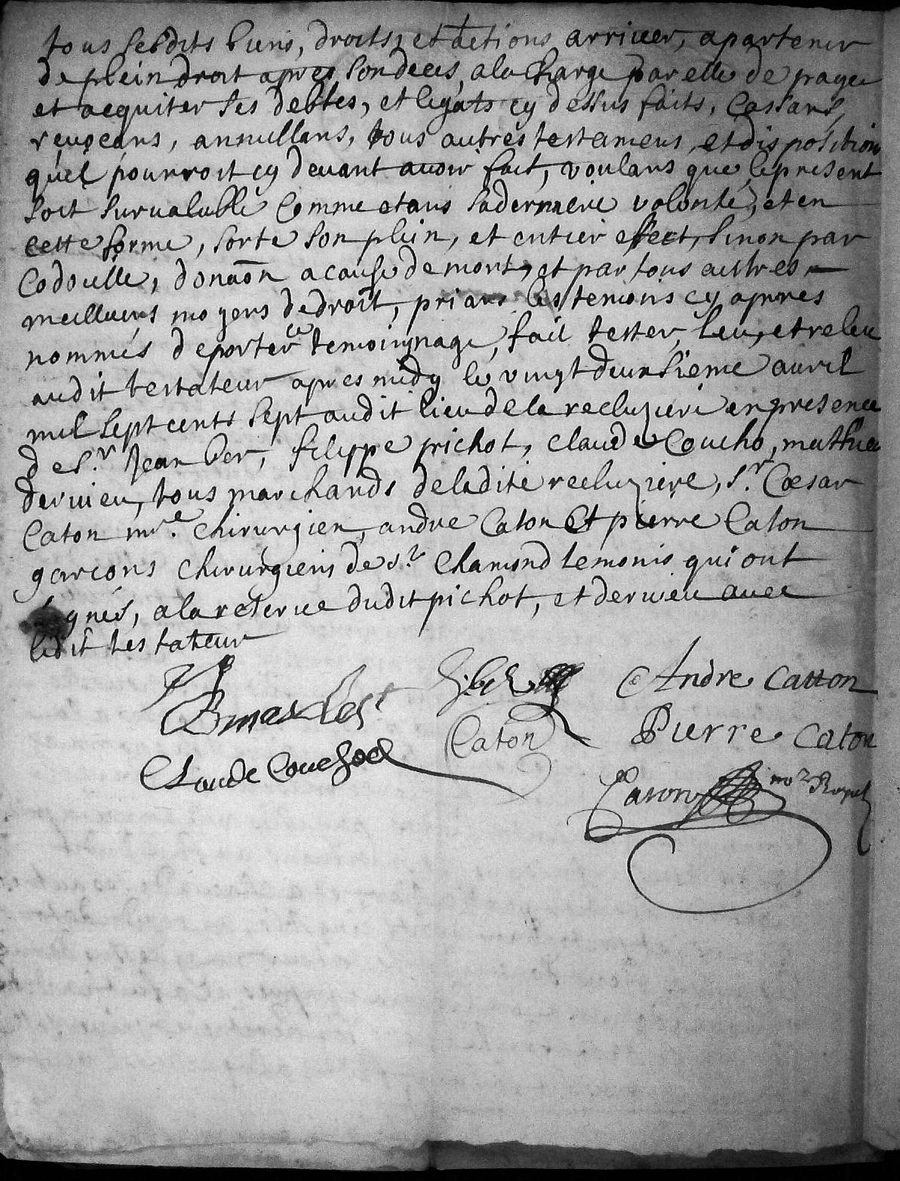 tous sesdits biens, droits, et actions arriver, apartenir
de plein droit apres son deces, ala charge par elle de payer
et acquiter ses debtes, et legats cy dessus faits, cassans,
revocans, annullans, tous autres testamens, et dispositions
quel pourroit cy devant avoir fait, voulans que le present
soit survalable comme etans sa derniere volonté, et en
cette forme, sorte son plein, et entier effect, sinon par
Codoille, donaõn a cause de mort, et par tous autres
meilleurs moyens de droit, prians les temoins cy apres
nommés deporter ce temoignage, fait tester, leu, et releu
audit testateur apres midy le vingt deuxsieme avril
mil sept cents sept audit lieu de la recluziere en presence
de Sr. Jean Ber, filippe pichot, claude Coucho, mathieu
dervieu, tous marchands de ladite recluziere, Sr. Cœsar
Caton mre. chirurgien, andre Caton Et pierre Caton
garçons chirurgiens de St. Chamond temonis qui ont
signés, ala reserve dudit pichot, et dervieu avec
ledit testateur
Andre Catton
Claude Couchoel
Caton
Pierre Caton
Caton nore Royal